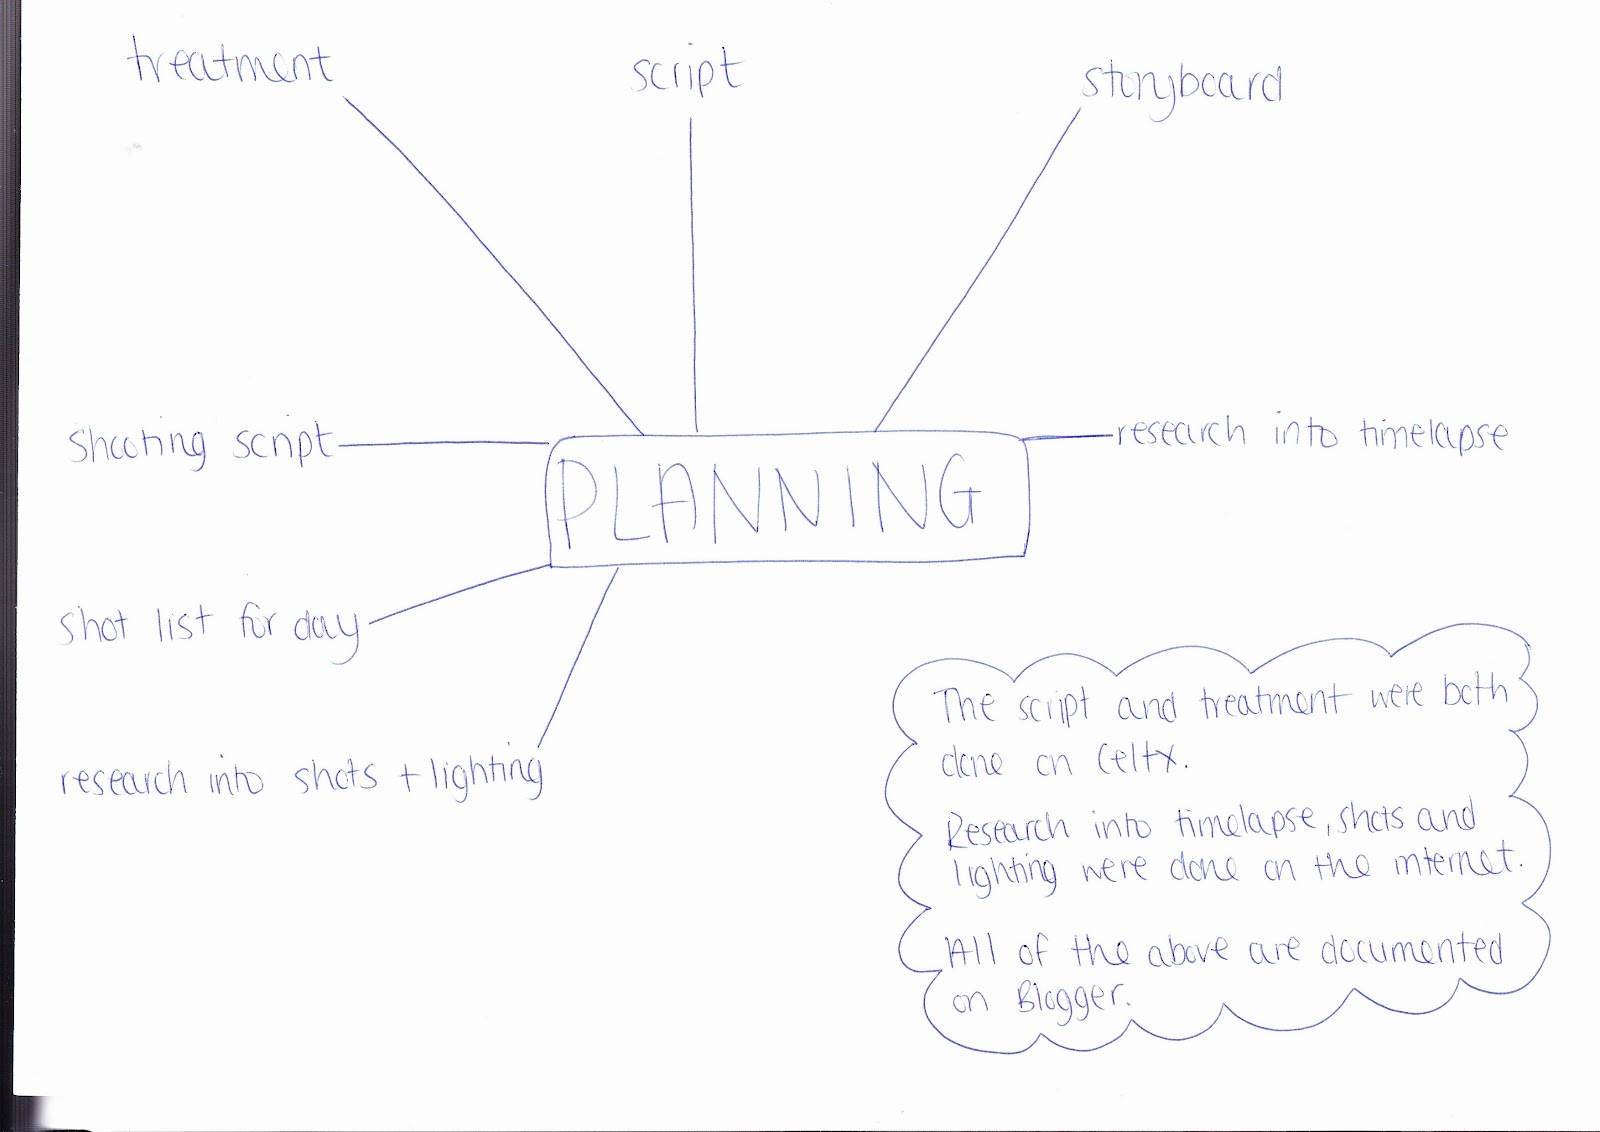 treatment
script
storyboard
shooting script
research into timelapse
PLANNING
shot list for day
research into shots + lighting
The script and treatment were both
done on Celtx.
Research into timelapse, shots and
lighting were done on the internet.
All of the above are documented
on Blogger.